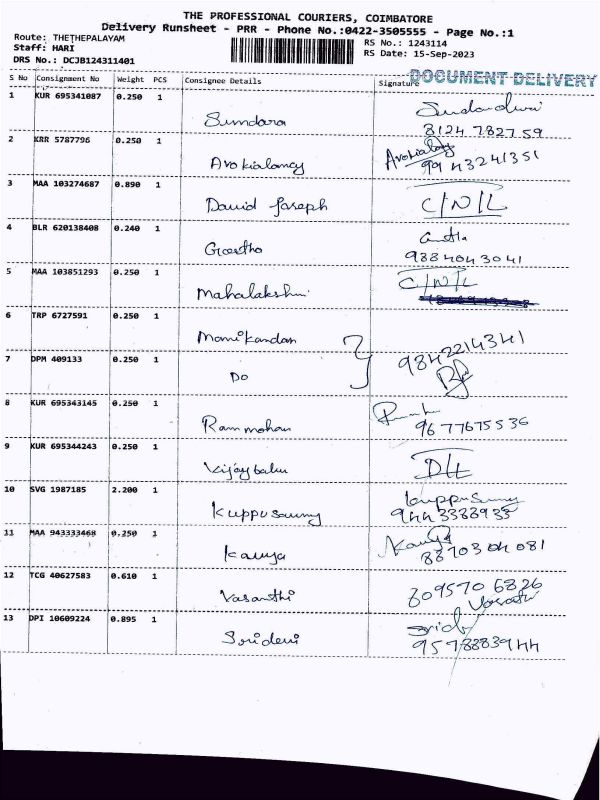 THE PROFESSIONAL COURIERS, COIMBATORE
Delivery Runsheet - PRR - Phone No.:0422-3505555 - Page No.:1
Route: THETHEPALAYAM
Staff: HARI
DRS No.: DCJB124311401
RS No.: 1243114
RS Date: 15-Sep-2023
S No Consignment No Weight PCS Consignee Details Signature
DOCUMENT DELIVERY
1 KUR 695341087 0.250 1 Sundara
8124782759
2 KRR 5787796 0.250 1 Arokialancy Arokialancy
9943241351
3 MAA 103274687 0.890 1 David Joseph C/N/L
4 BLR 620138408 0.240 1
9884043041
5 MAA 103851293 0.250 1 Mahalakshmi C/N/L
6 TRP 6727591 0.250 1 Manikandan
9842214341
7 DPM 409133 0.250 1 Do
8 KUR 695343145 0.250 1 Rammohan
9677675536
9 KUR 695344243 0.250 1 Vijaybabu D/L
10 SVG 1987185 2.200 1 Kuppusamy Kuppusamy
11 MAA 943333468 0.250 1 Kavya Kavya
12 TCG 40627583 0.610 1 Vasanthi
Vasanthi
13 DPI 10609224 0.895 1 Sridevi